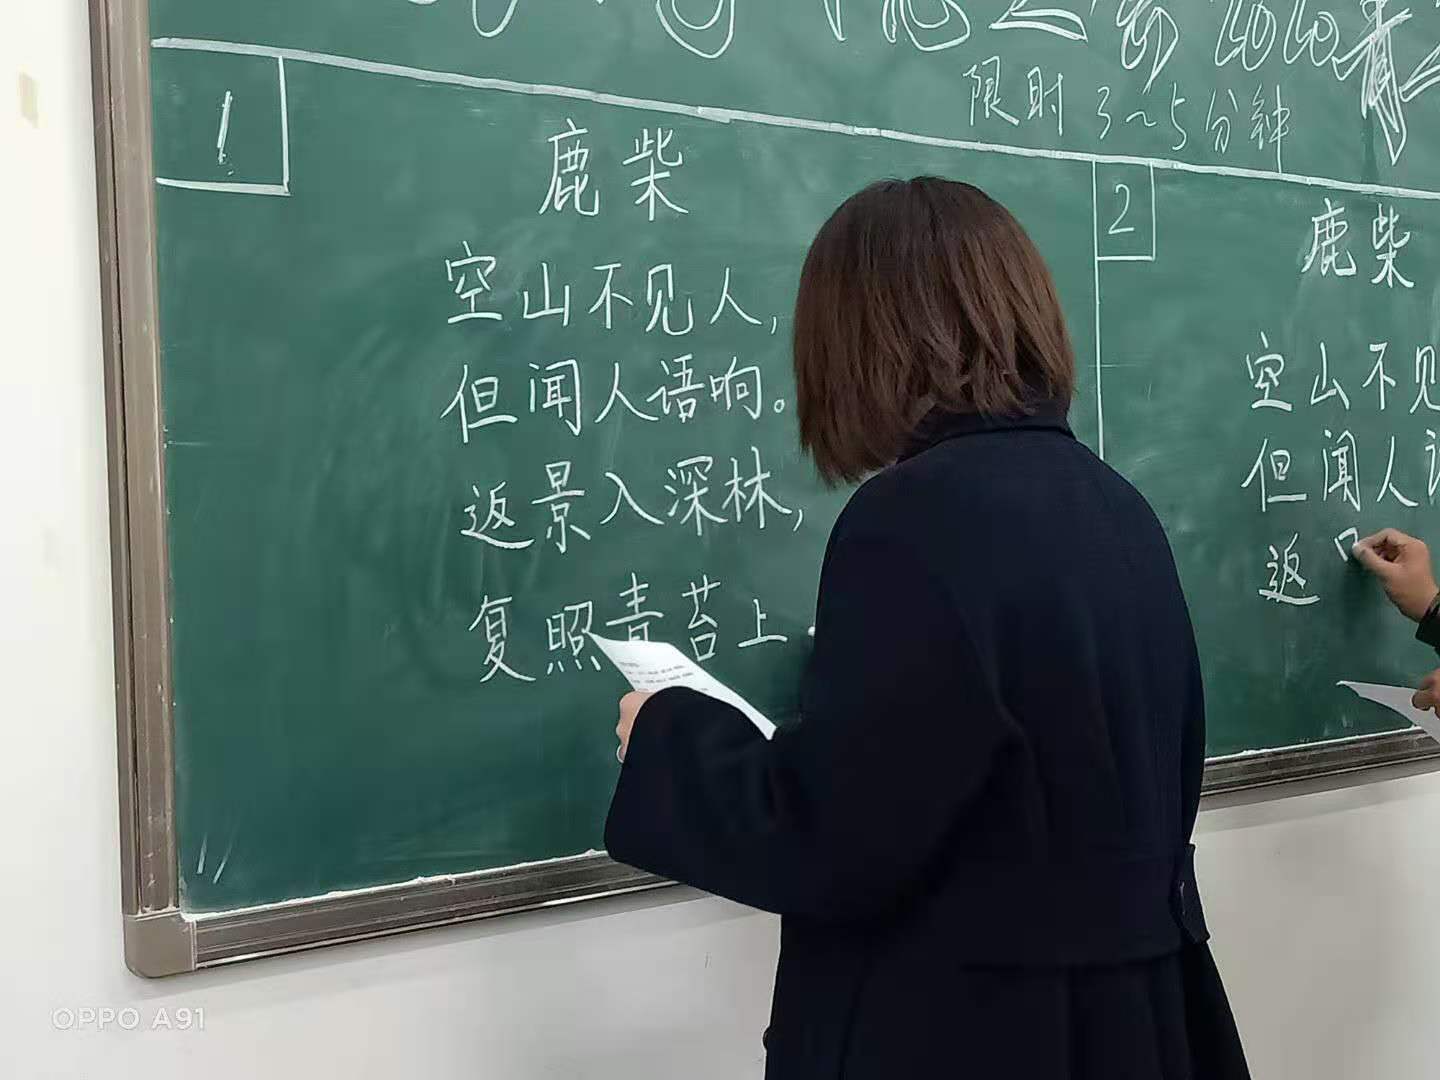 限时3~5分钟
1
鹿柴
空山不见人,
但闻人语响。
返景入深林,
复照青苔上.
2
鹿柴
空山不见
但闻人
返
OPPO A91